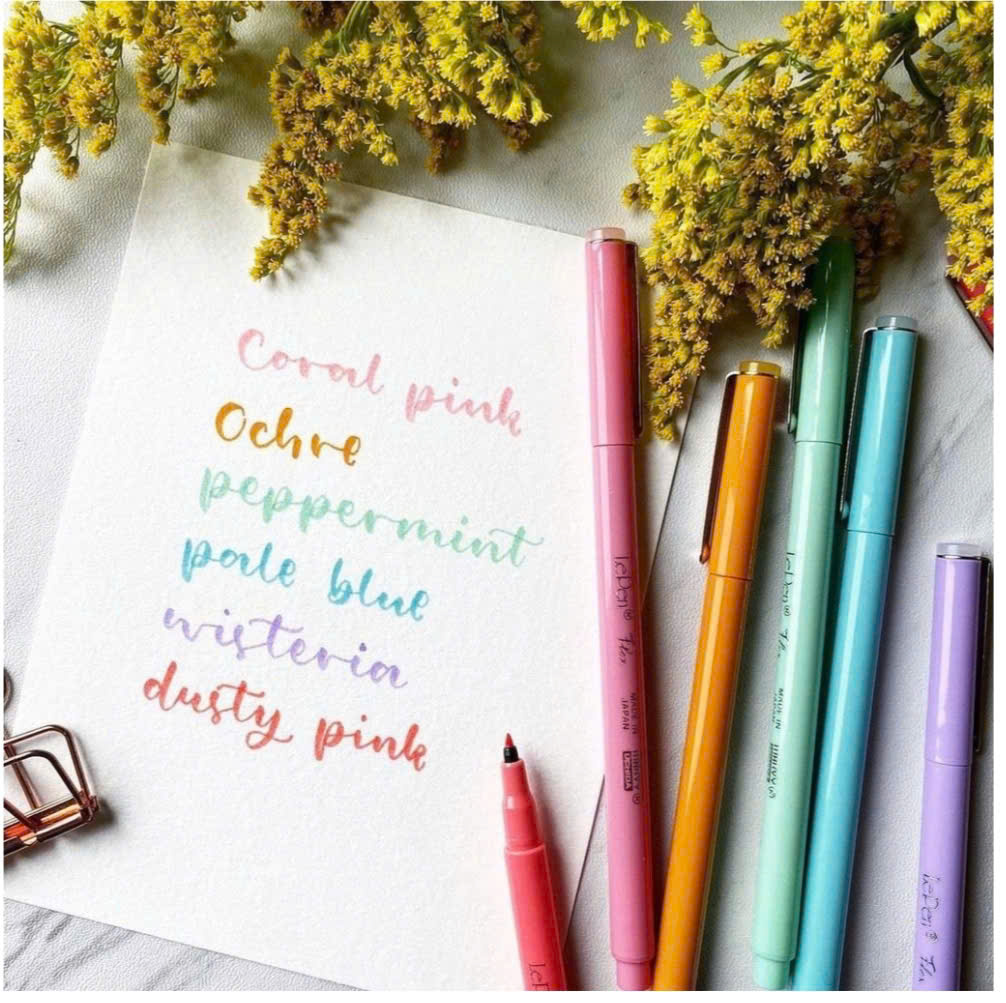 Coral pink
Ochre
peppermint
pale blue
wisteria
dusty pink
LePen® Flex
MADE IN
JAPAN
UCHIDA
LePen® Flex
MADE IN
JAPAN
LePen® Flex
LeP